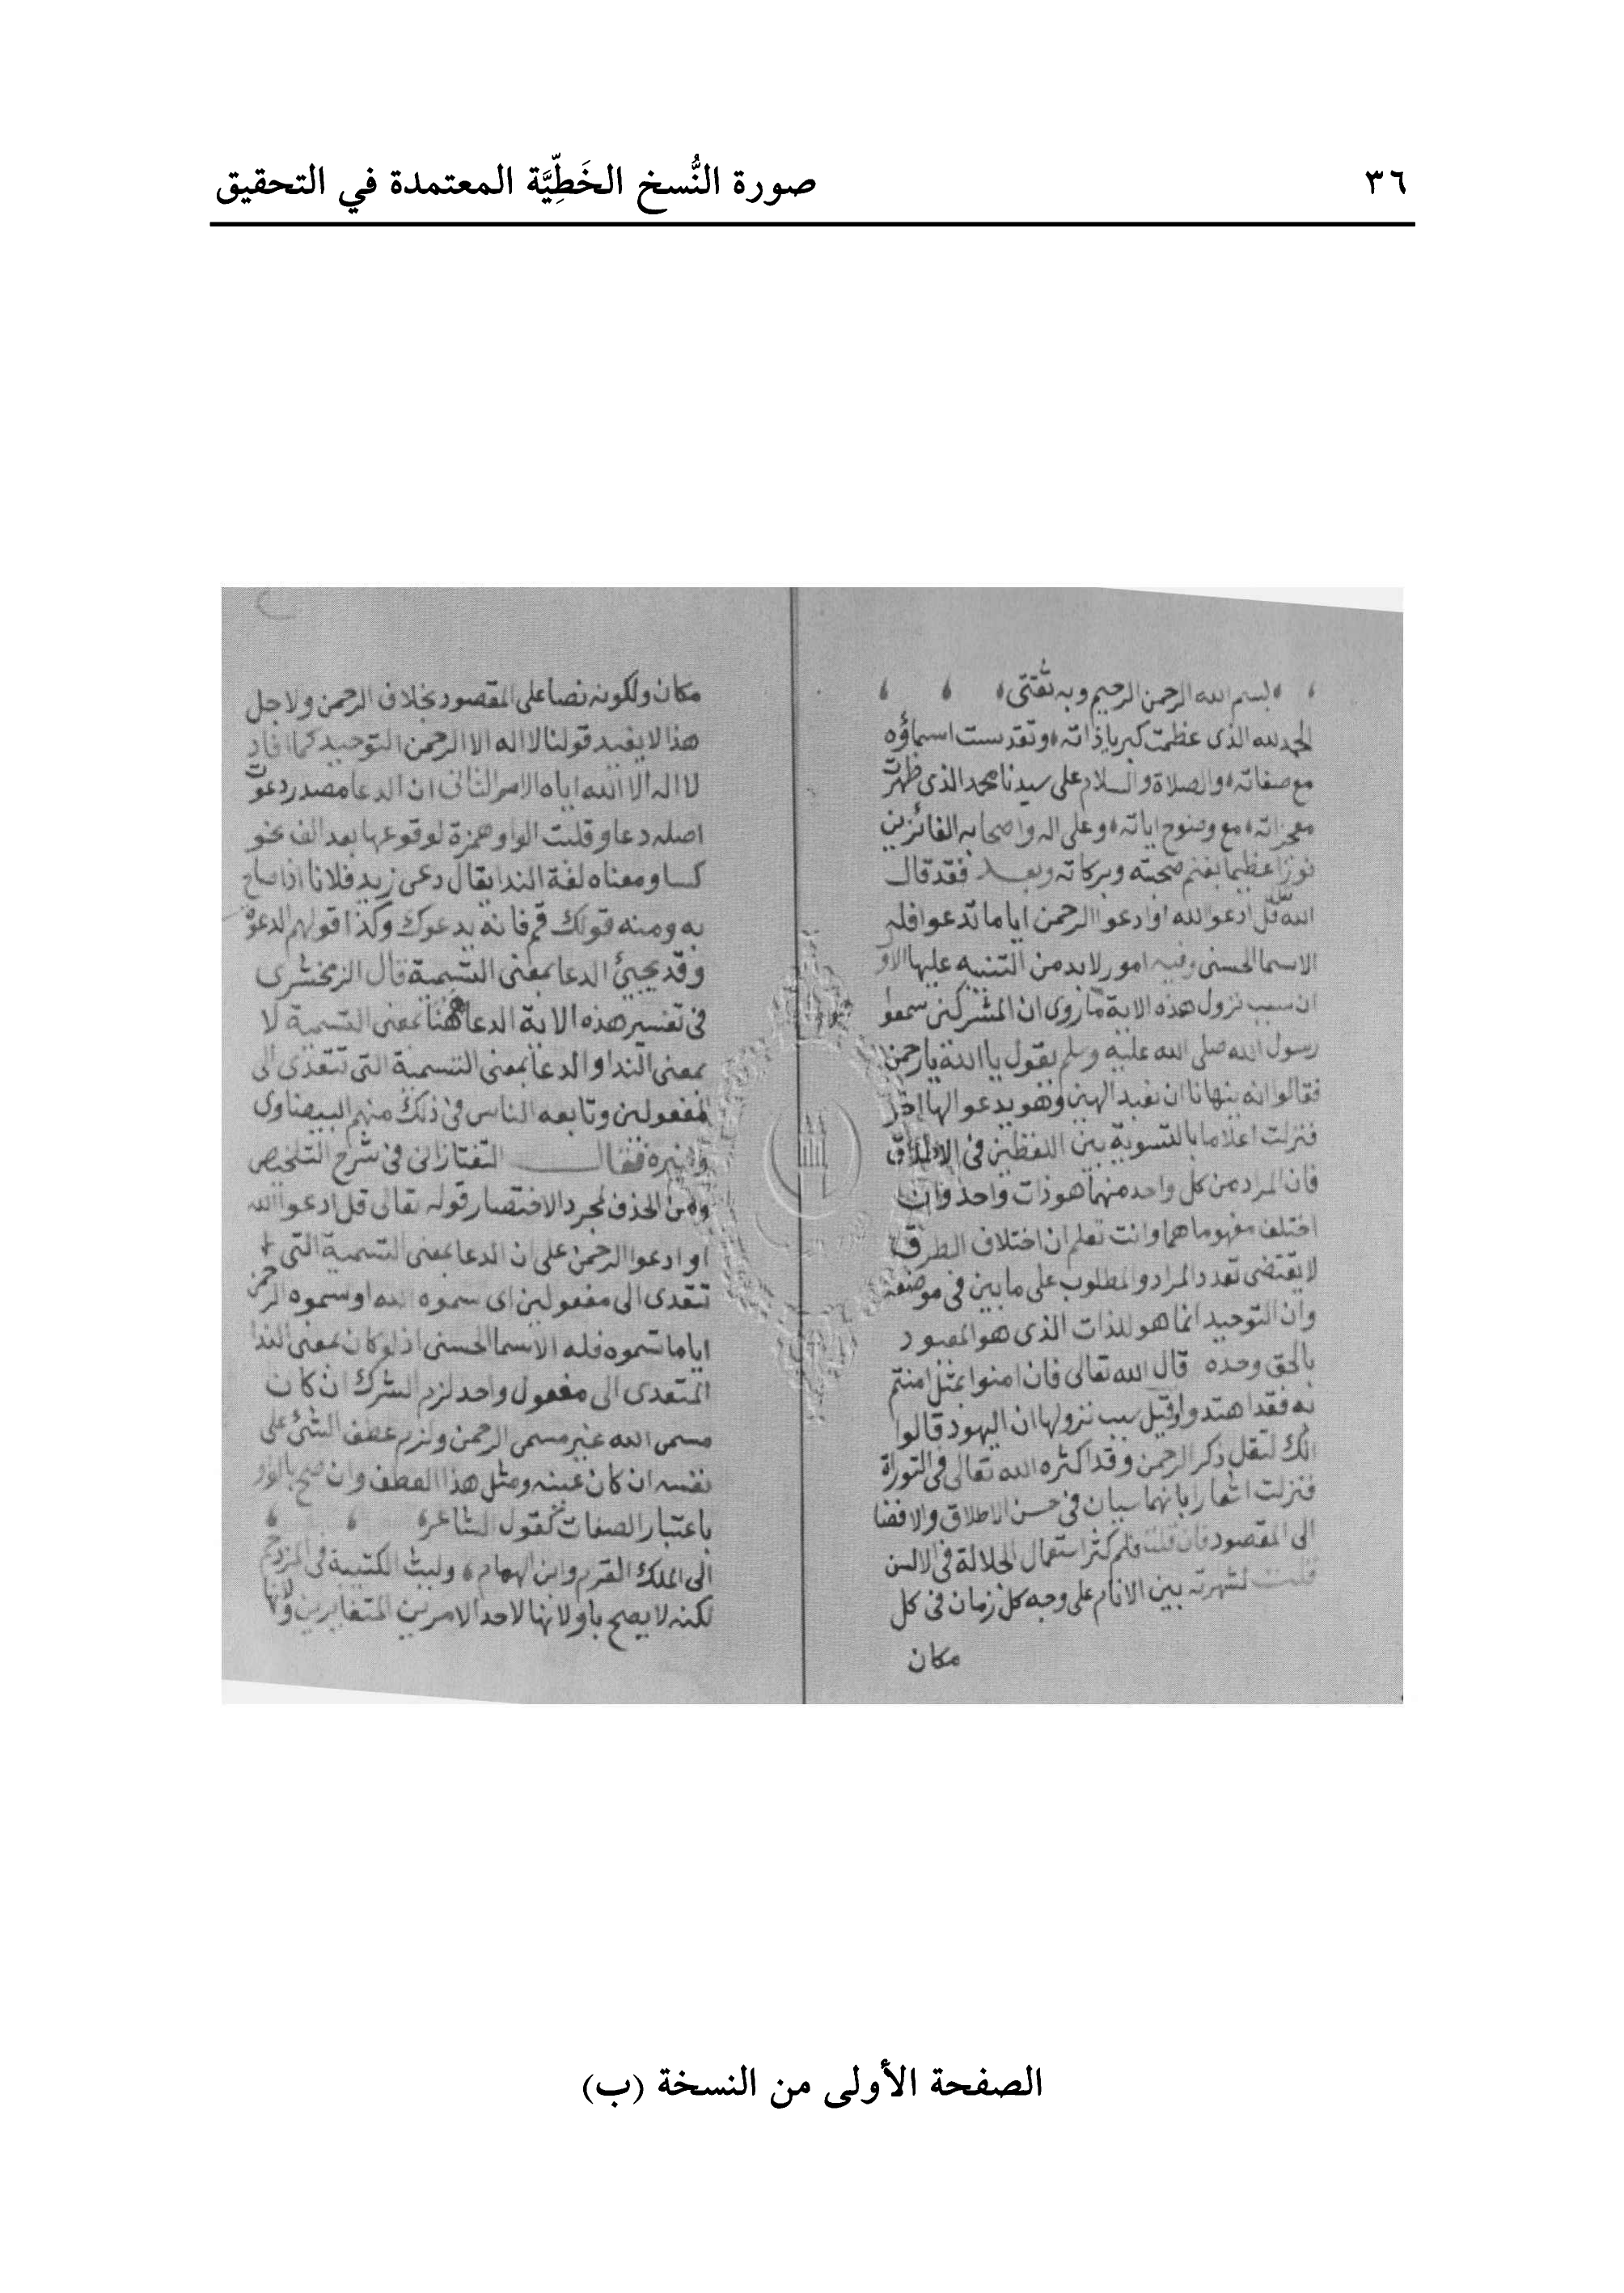 ٣٦
صورة النُّسخ الخَطِّيَّة المعتمدة في التحقيق
بسم الله الرحمن الرحيم وبه ثقتى
الحمد لله الذى عظمت كبرياذاته وتقدست اسماؤه
مع صفاته والصلاة والسلام على سيدنا محمد الذى ظهرت
معجزاته مع وضوح اياته وعلى اله واصحابه الفائزين
فوزا عظيما بفنم صحبته وبركاته وبعد فقد قال
الله قل ادعوالله اوادعوا الرحمن اياما تدعوا فله
الاسما الحسنى وفيه امور لابد من التنبيه عليها الاو
ان سبب نزول هذه الاية ماروى ان المشركين سمعوا
رسول الله صلى الله عليه وسلم يقول يا الله يا رحمن
فقالوا انه ينهانا ان نعبد الهين وهو يدعو الها اخر
فنزلت اعلاما بالتسوية بين اللفظين فى الاطلاق
فان المراد من كل واحد منهما هو ذات واحد وان
اختلف مفهوماهما وانت تعلم ان اختلاف الطرق
لا يقتضى تعدد المراد والمطلوب على ما بين فى موضعه
وان التوحيد انما هو للذات الذى هو المعبود
بالحق وحده قال الله تعالى فان امنوا بمثل امنتم
به فقد اهتدوا وقيل سبب نزولها ان اليهود قالوا
انك لتقل ذكر الرحمن وقد اكثره الله تعالى فى التوراة
فنزلت اشعارا بانهما سيان فى حسن الاطلاق والافضا
الى المقصود فان قلت فلم كثر استعمال الجلالة فى الالسن
قلت لشهرته بين الانام على وجه كل زمان فى كل
مكان
مكان ولكونه نصا على المقصود بخلاف الرحمن ولاجل
هذا لا يفيد قولنا لا اله الا الرحمن التوحيد كما افاد
لا اله الا الله اياه الامر الثانى ان الدعا مصدر دعوت
اصله دعاو قلبت الواو همزة لوقوعها بعد الف نحو
كسا ومعناه لغة الندا يقال دعى زيد فلانا اذا صاح
به ومنه قولك قم فانه يدعوك وكذا قولهم الدعوة
وقد يجيئ الدعا بمعنى التسمية قال الزمخشرى
فى تفسير هذه الاية الدعا ههنا بمعنى التسمية لا
بمعنى الندا والدعا بمعنى التسمية التى تتعدى الى
مفعولين وتابعه الناس فى ذلك منهم البيضاوى
وغيره فقال التفتازانى فى شرح التلخيص
ومن الحذف لمجرد الاختصار قوله تعالى قل ادعوا الله
او ادعوا الرحمن على ان الدعا بمعنى التسمية التى
تتعدى الى مفعولين اى سموه الله او سموه الرحمن
اياما تسموه فله الاسما الحسنى اذ لو كان بمعنى الندا
المتعدى الى مفعول واحد لزم الشرك ان كان
مسمى الله غير مسمى الرحمن ولزم عطف الشئ على
نفسه ان كان عينه ومثل هذا العطف وان صح بالواو
باعتبار الصفات كقول الشاعر
الى الملك القرم وابن الهمام وليث الكتيبة فى المزدحم
لكنه لا يصح باو لانها لاحد الامرين المتغايرين ولانها
الصفحة الأولى من النسخة (ب)